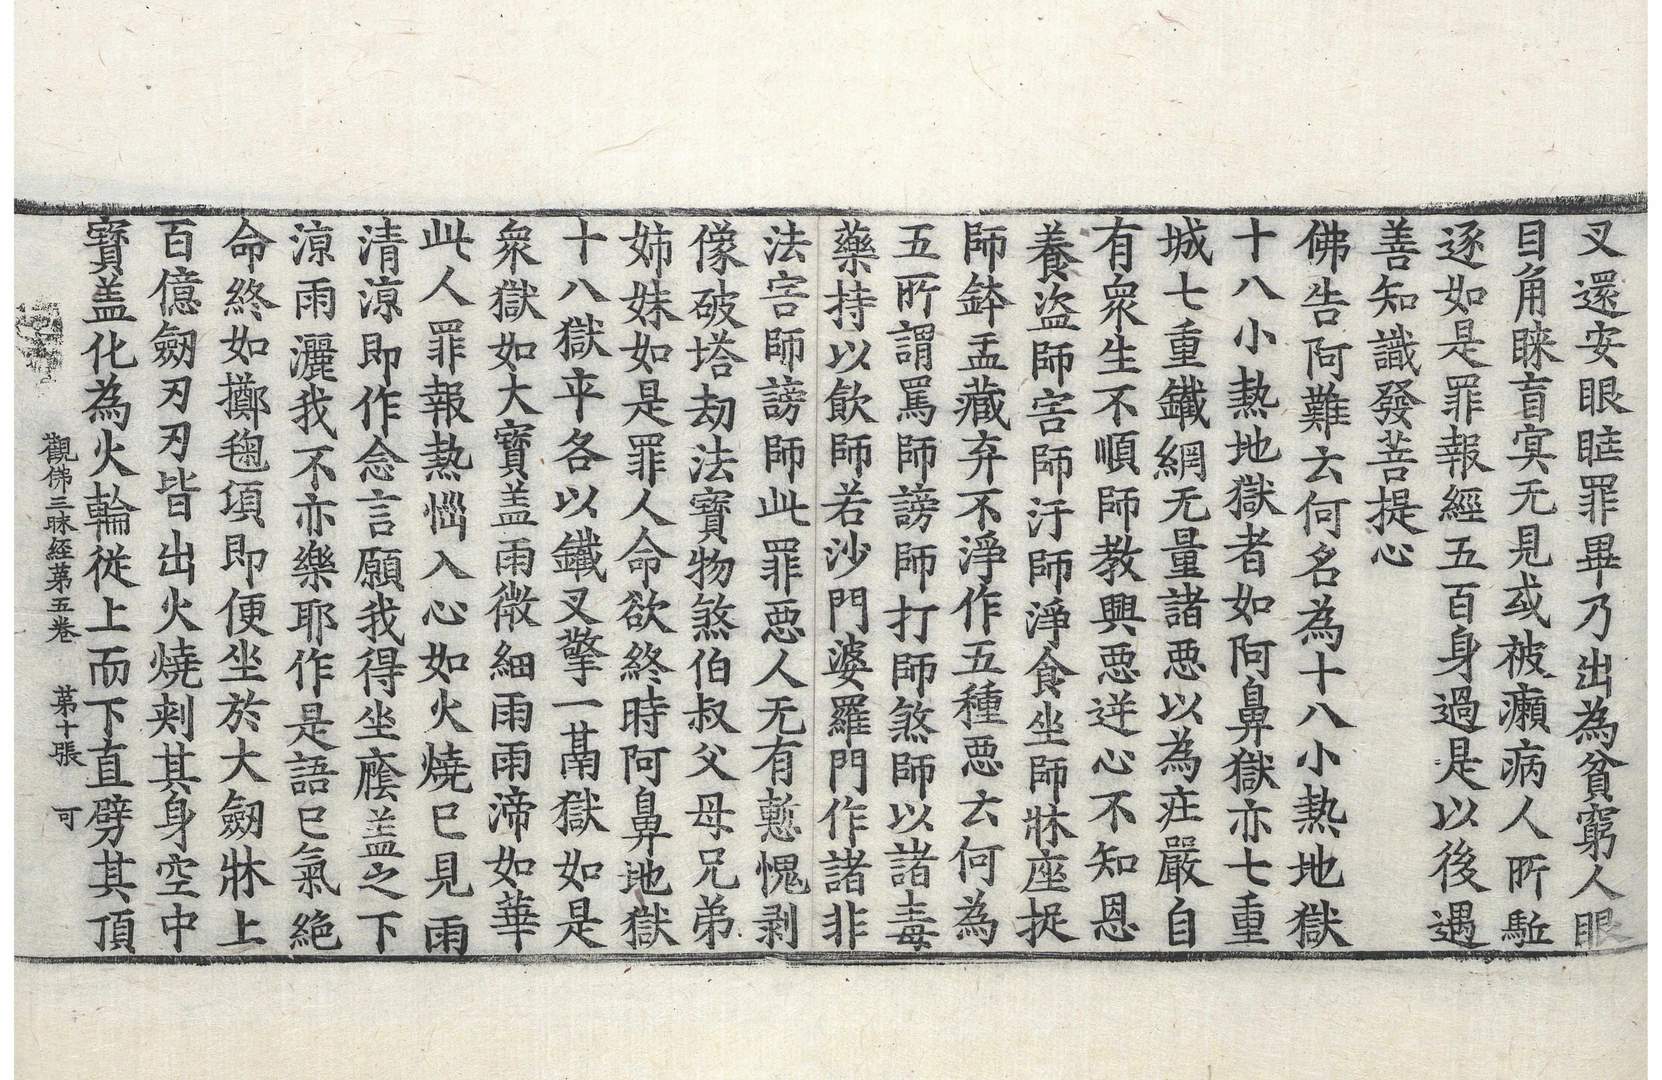 叉還安眼眶罪畢乃出為貧窮人眼
目角睞盲冥无見或被癩病人所駈
逐如是罪報經五百身過是以後遇
善知識發菩提心
佛告阿難云何名為十八小熱地獄
十八小熱地獄者如阿鼻獄亦七重
城七重鐵網无量諸惡以為庄嚴自
有衆生不順師教興惡逆心不知恩
養盜師害師汙師淨食坐師牀座捉
師鉢盂藏弃不淨作五種惡云何為
五所謂罵師謗師打師煞師以諸毒
藥持以飲師若沙門婆羅門作諸非
法害師謗師此罪惡人无有慙愧剥
像破塔劫法寶物煞伯叔父母兄弟
姉妹如是罪人命欲終時阿鼻地獄
十八獄卒各以鐵叉擎一鬲獄如是
衆獄如大寶盖雨微細雨雨渧如華
此人罪報熱惱入心如火燒已見雨
清涼即作念言願我得坐䕃盖之下
涼雨灑我不亦樂耶作是語已氣絶
命終如擲毱項即便坐於大劒牀上
百億劒刃刃皆出火燒剌其身空中
寶盖化為火輪從上而下直劈其頂
觀佛三昧経苐五卷　苐十張　可